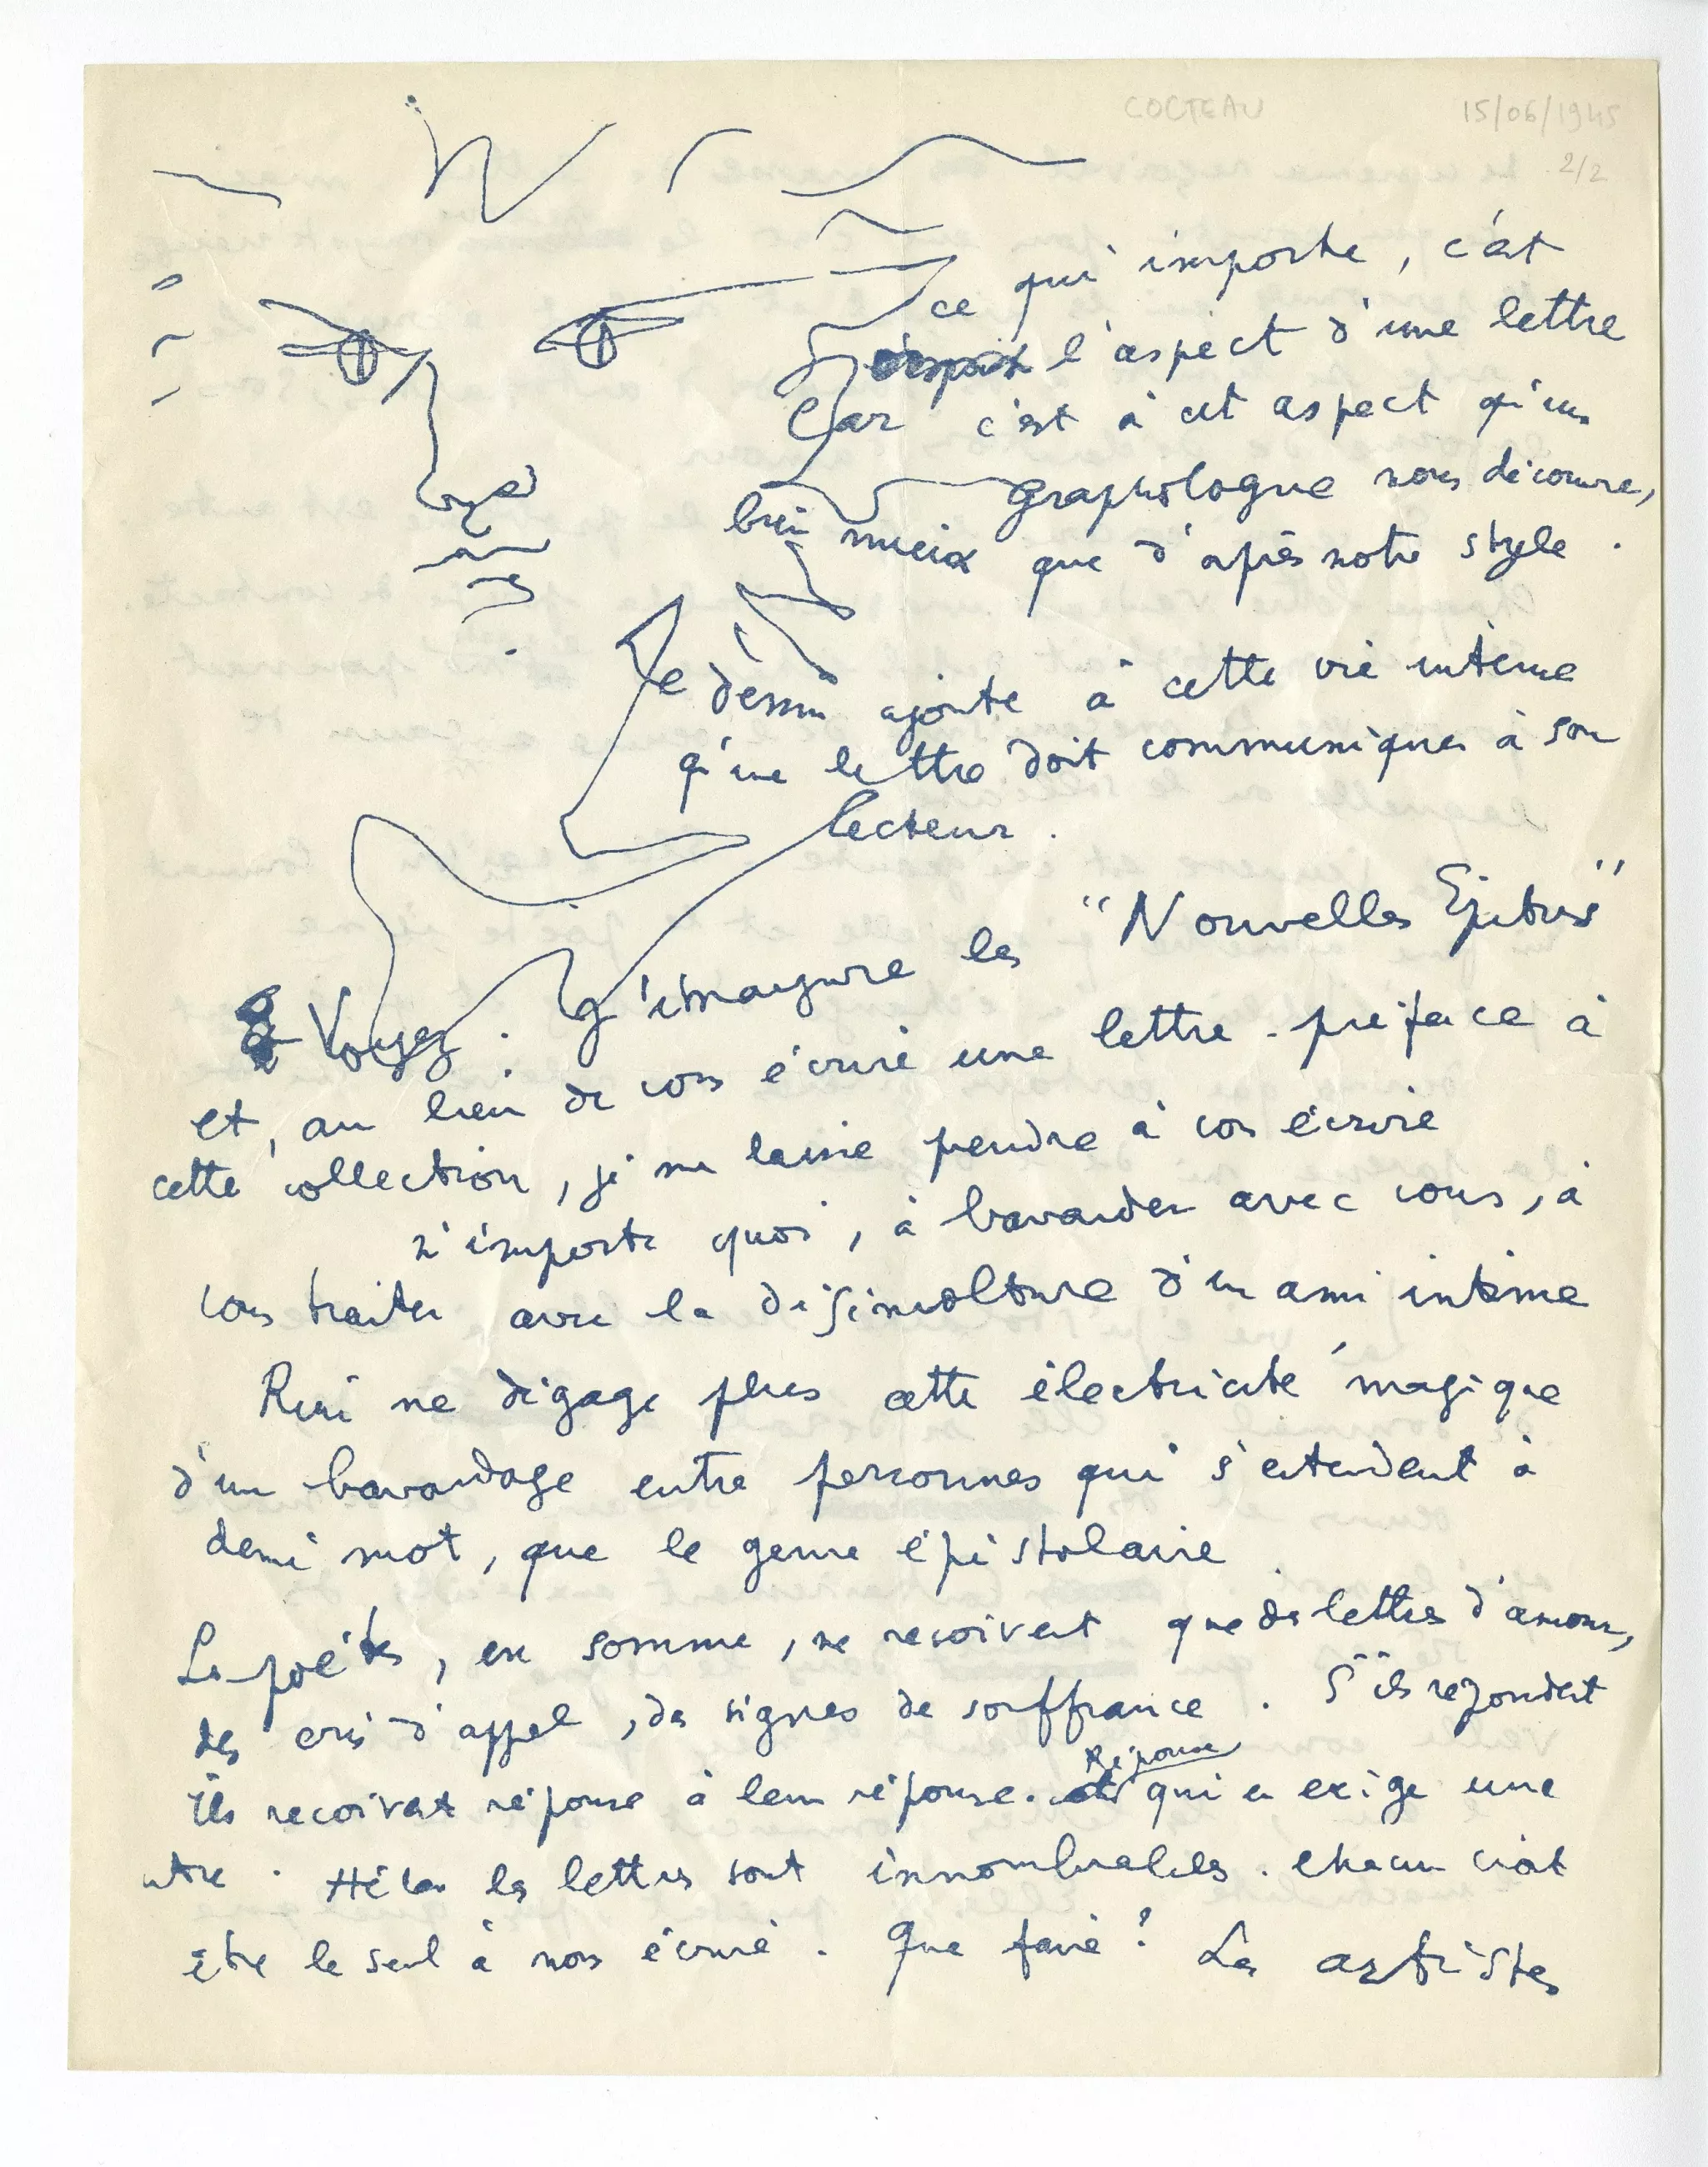 COCTEAU 15/06/1945
2/2
ce qui importe, c'est
l'aspect d'une lettre
Car c'est à cet aspect qu'un
graphologue nous découvre,
bien mieux que d'après notre style.
Le dessin ajoute à cette vie interne
qu'une lettre doit communiquer à son
lecteur.
Voyez. J'inaugure les "Nouvelles Epitres"
et, au lieu de vous écrire une lettre-préface à
cette collection, je me laisse prendre à vous écrire
n'importe quoi, à bavarder avec vous, à
vous traiter avec la désinvolture d'un ami intime
Rien ne dégage plus cette électricité magique
d'un bavardage entre personnes qui s'entendent à
demi mot, que le genre épistolaire
Les poètes, en somme, ne reçoivent que des lettres d'amour,
des cris d'appel, des signes de souffrance. S'ils repondent
Ils recoivent réponse à leur réponse. Réponse qui en exige une
autre. Hélas les lettres sont innombrables. chacun croit
être le seul à nous écrire. Que faire? Les artistes